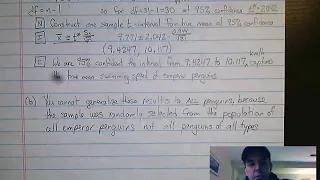 df=n-1 so for df=31-1=30 at 95% confidence t*=2.042
N Construct one sample t-interval for true mean at 95% confidence
E x̄ ± t* Sx/√n 9.771 ± 2.042 · 0.944/√31
(9.4247, 10.117)
I We are 95% confident the interval from 9.4247 to 10.117 km/h captures
the true mean swimming speed of emperor penguins
(b) You cannot generalize these results to ALL penguins, because
the sample was randomly selected from the population of
all emperor penguins not all penguins of all types